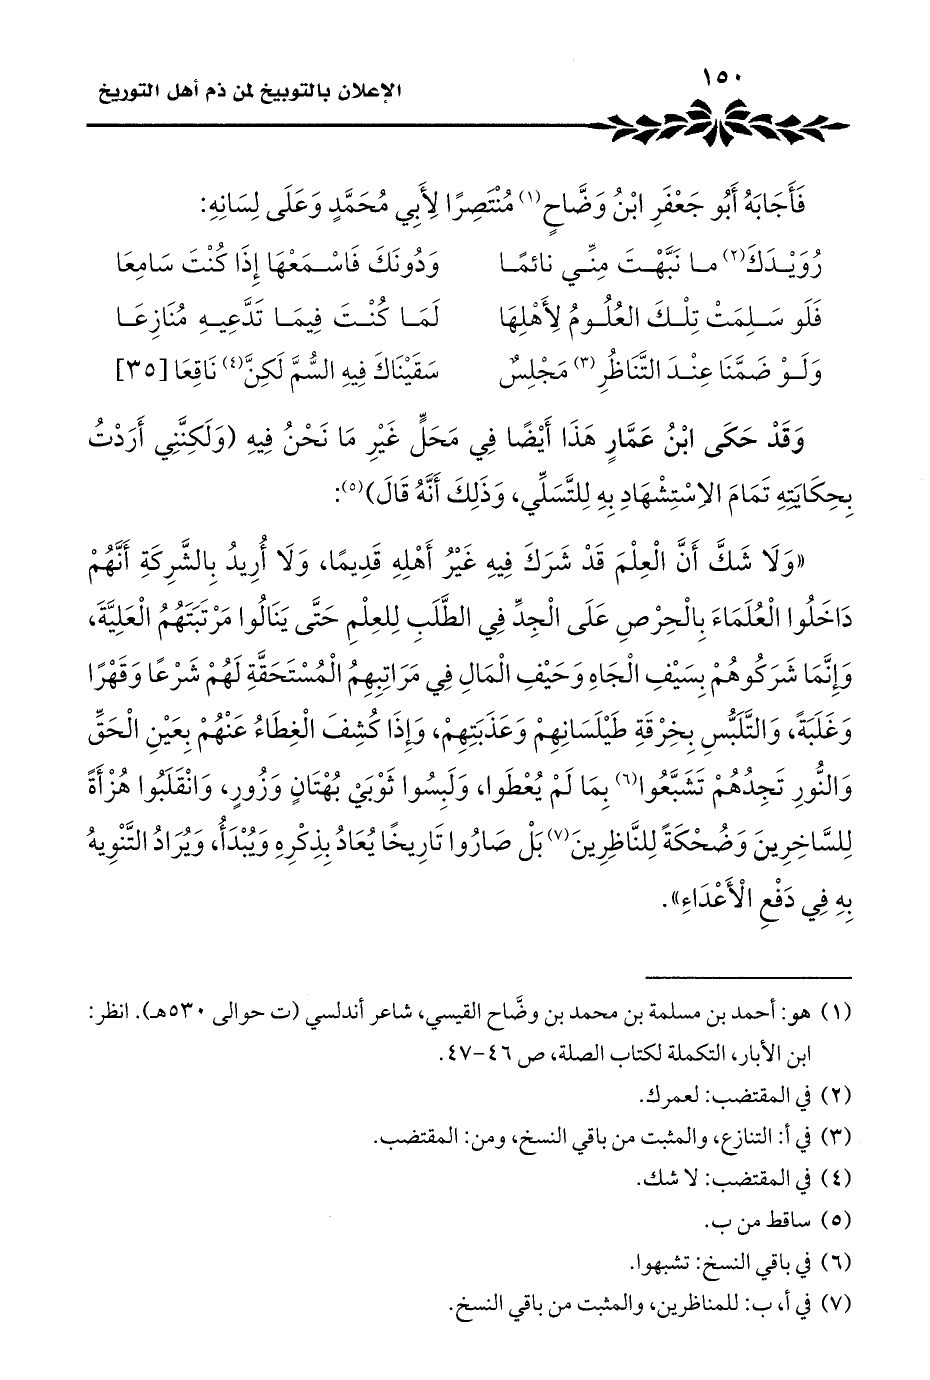 ١٥٠
الإعلان بالتوبيخ لمن ذم أهل التوريخ
فَأَجَابَهُ أَبُو جَعْفَرِ ابْنُ وَضَّاحٍ(١) مُنْتَصِرًا لِأَبِي مُحَمَّدٍ وَعَلَى لِسَانِهِ:
رُوَيْدَكَ(٢) مـا نَبَّهْتَ مِنِّي نائمًا وَدُونَكَ فَاسْمَعْهَا إِذَا كُنْتَ سَامِعَا
فَلَو سَلِمَتْ تِلْكَ العُلُومُ لِأَهْلِهَا لَمَا كُنْتَ فِيمَا تَدَّعِيهِ مُنَازِعَا
وَلَوْ ضَمَّنَا عِنْدَ التَّنَاظُرِ(٣) مَجْلِسٌ سَقَيْنَاكَ فِيهِ السُّمَّ لَكِنَّ(٤) نَاقِعَا [٣٥]
وَقَدْ حَكَى ابْنُ عَمَّارٍ هَذَا أَيْضًا فِي مَحَلٍّ غَيْرِ مَا نَحْنُ فِيهِ (وَلَكِنَّنِي أَرَدْتُ
بِحِكَايَتِهِ تَمَامَ الاِسْتِشْهَادِ بِهِ لِلتَّسَلِّي، وَذَلِكَ أَنَّهُ قَالَ)(٥):
«وَلَا شَكَّ أَنَّ الْعِلْمَ قَدْ شَرَكَ فِيهِ غَيْرُ أَهْلِهِ قَدِيمًا، وَلَا أُرِيدُ بِالشَّرِكَةِ أَنَّهُمْ
دَاخَلُوا الْعُلَمَاءَ بِالْحِرْصِ عَلَى الْجِدِّ فِي الطَّلَبِ لِلعِلْمِ حَتَّى يَنَالُوا مَرْتَبَتَهُمُ الْعَلِيَّةَ،
وَإِنَّمَا شَرَكُوهُمْ بِسَيْفِ الْجَاهِ وَحَيْفِ الْمَالِ فِي مَرَاتِبِهِمُ الْمُسْتَحَقَّةِ لَهُمْ شَرْعًا وَقَهْرًا
وَغَلَبَةً، وَالتَّلَبُّسِ بِخِرْقَةِ طَيْلَسَانِهِمْ وَعَذَبَتِهِمْ، وَإِذَا كُشِفَ الْغِطَاءُ عَنْهُمْ بِعَيْنِ الْحَقِّ
وَالنُّورِ تَجِدُهُمْ تَشَبَّعُوا(٦) بِمَا لَمْ يُعْطَوا، وَلَبِسُوا ثَوْبَيْ بُهْتَانٍ وَزُورٍ، وَانْقَلَبُوا هُزْأَةً
لِلسَّاخِرِينَ وَضُحْكَةً لِلنَّاظِرِينَ(٧) بَلْ صَارُوا تَارِيخًا يُعَادُ بِذِكْرِهِ وَيُبْدَأُ، وَيُرَادُ التَّنْوِيهُ
بِهِ فِي دَفْعِ الْأَعْدَاءِ».
(١) هو: أحمد بن مسلمة بن محمد بن وضَّاح القيسي، شاعر أندلسي (ت حوالى ٥٣٠هـ). انظر:
ابن الأبار، التكملة لكتاب الصلة، ص ٤٦-٤٧.
(٢) في المقتضب: لعمرك.
(٣) في أ: التنازع، والمثبت من باقي النسخ، ومن: المقتضب.
(٤) في المقتضب: لا شك.
(٥) ساقط من ب.
(٦) في باقي النسخ: تشبهوا.
(٧) في أ، ب: للمناظرين، والمثبت من باقي النسخ.